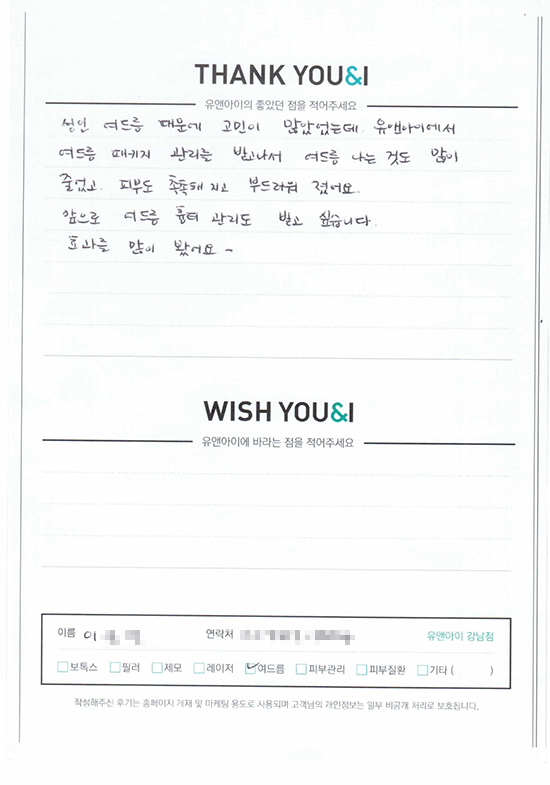 THANK YOU&I
유앤아이의 좋았던 점을 적어주세요
성인 여드름 때문에 고민이 많았었는데 유앤아이에서
여드름 패키지 관리를 받고나서 여드름 나는 것도 많이
줄었고. 피부도 촉촉해 지고 부드러워 졌어요.
앞으로 여드름 흉터 관리도 받고 싶습니다.
효과를 많이 봤어요~
WISH YOU&I
유앤아이에 바라는 점을 적어주세요
이름 이 연락처 유앤아이 강남점
보톡스 필러 제모 레이저 여드름 피부관리 피부질환 기타 ( )
작성해주신 후기는 홈페이지 게재 및 마케팅 용도로 사용되며 고객님의 개인정보는 일부 비공개 처리로 보호됩니다.